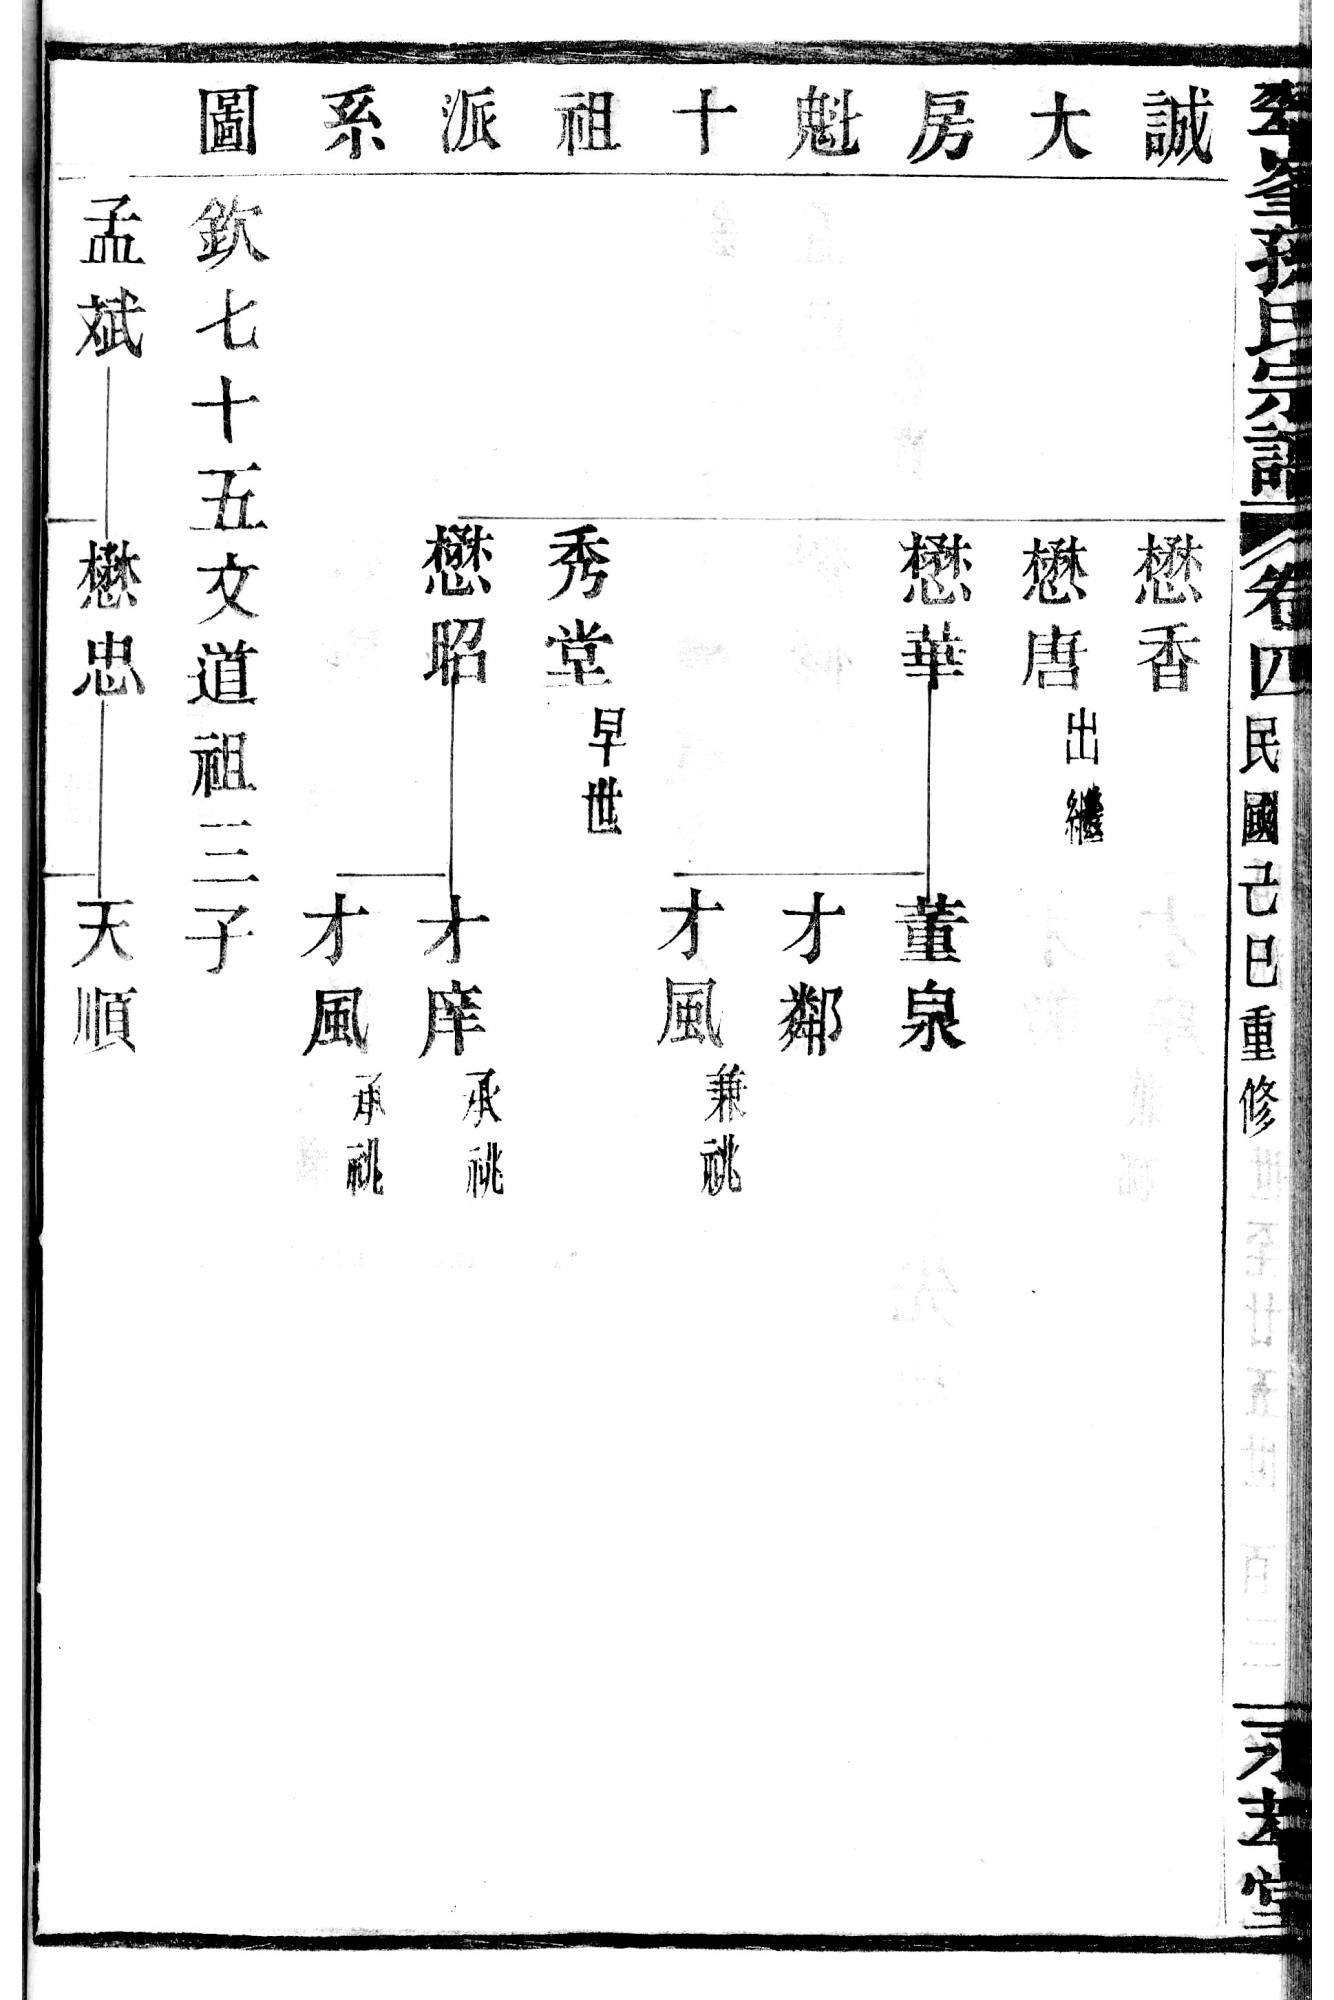 孫氏宗譜
卷四
民國己巳重修
堂
誠大房魁十祖派系圖
懋香
懋唐
出繼
懋華
董泉
才鄰
才風
兼祧
秀堂
早世
懋昭
才庠
承祧
才風
承祧
欽七十五文道祖三子
孟斌
懋忠
天順